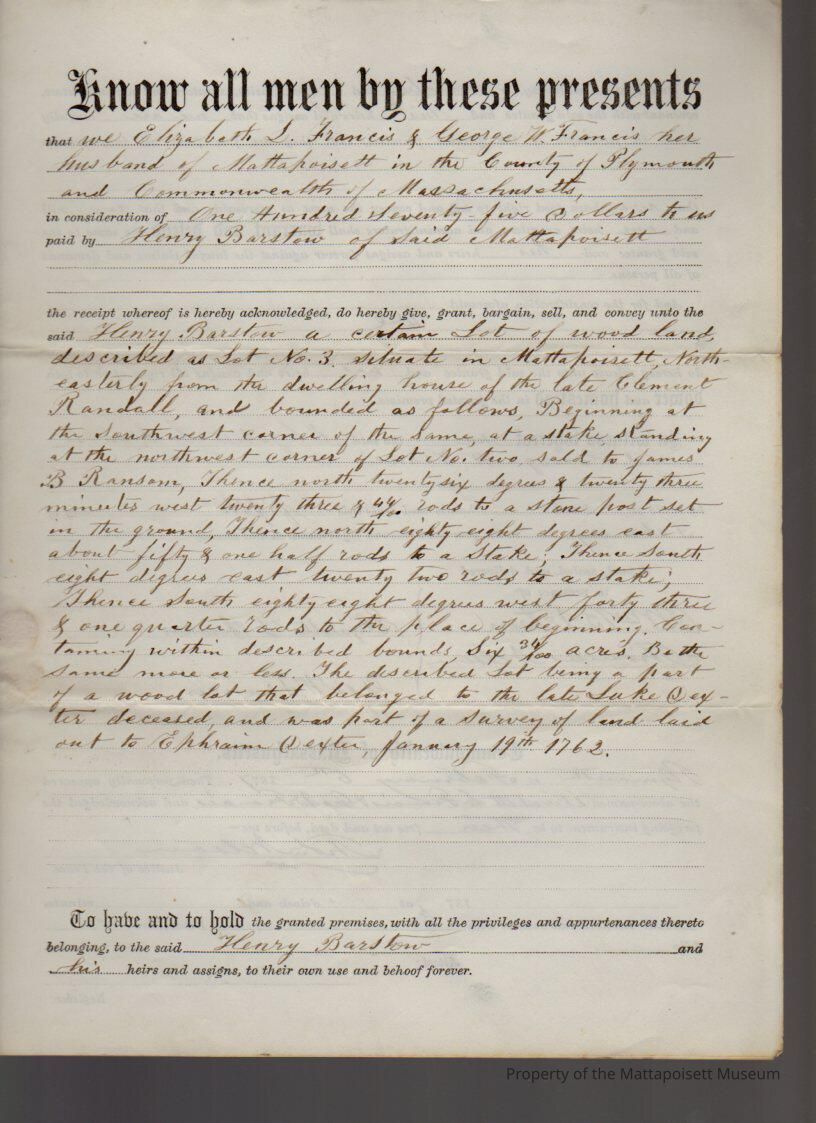 Know all men by these presents
that we Elizabeth L. Francis & George W. Francis her
husband of Mattapoisett in the County of Plymouth
and Commonwealth of Massachusetts,
in consideration of One Hundred Seventy-five Dollars to us
paid by Henry Barstow of said Mattapoisett
the receipt whereof is hereby acknowledged, do hereby give, grant, bargain, sell, and convey unto the
said Henry Barstow a certain Lot of wood land,
described as Lot No. 3. situate in Mattapoisett, North-
easterly from the dwelling house of the late Clement
Randall, and bounded as follows, Beginning at
the Southwest corner of the same, at a stake standing
at the northwest corner of Lot No. two, sold to James
B Ransom, Thence north twenty six degrees & twenty three
minutes west twenty three & 44/100 rods to a stone post set
in the ground, Thence north eighty eight degrees east
about fifty & one half rods to a Stake; Thence South
eight degrees east twenty two rods to a stake;
Thence South eighty eight degrees west forty three
& one quarter rods to the place of beginning. Con-
taining within described bounds, Six 34/100 acres. Be the
same more or less. The described Lot being a part
of a wood lot that belonged to the late Luke Dex-
ter deceased, and was part of a survey of land laid
out to Ephraim Dexter, January 19th 1762.
To have and to hold the granted premises, with all the privileges and appurtenances thereto
belonging, to the said Henry Barstow and
his heirs and assigns, to their own use and behoof forever.
Property of the Mattapoisett Museum